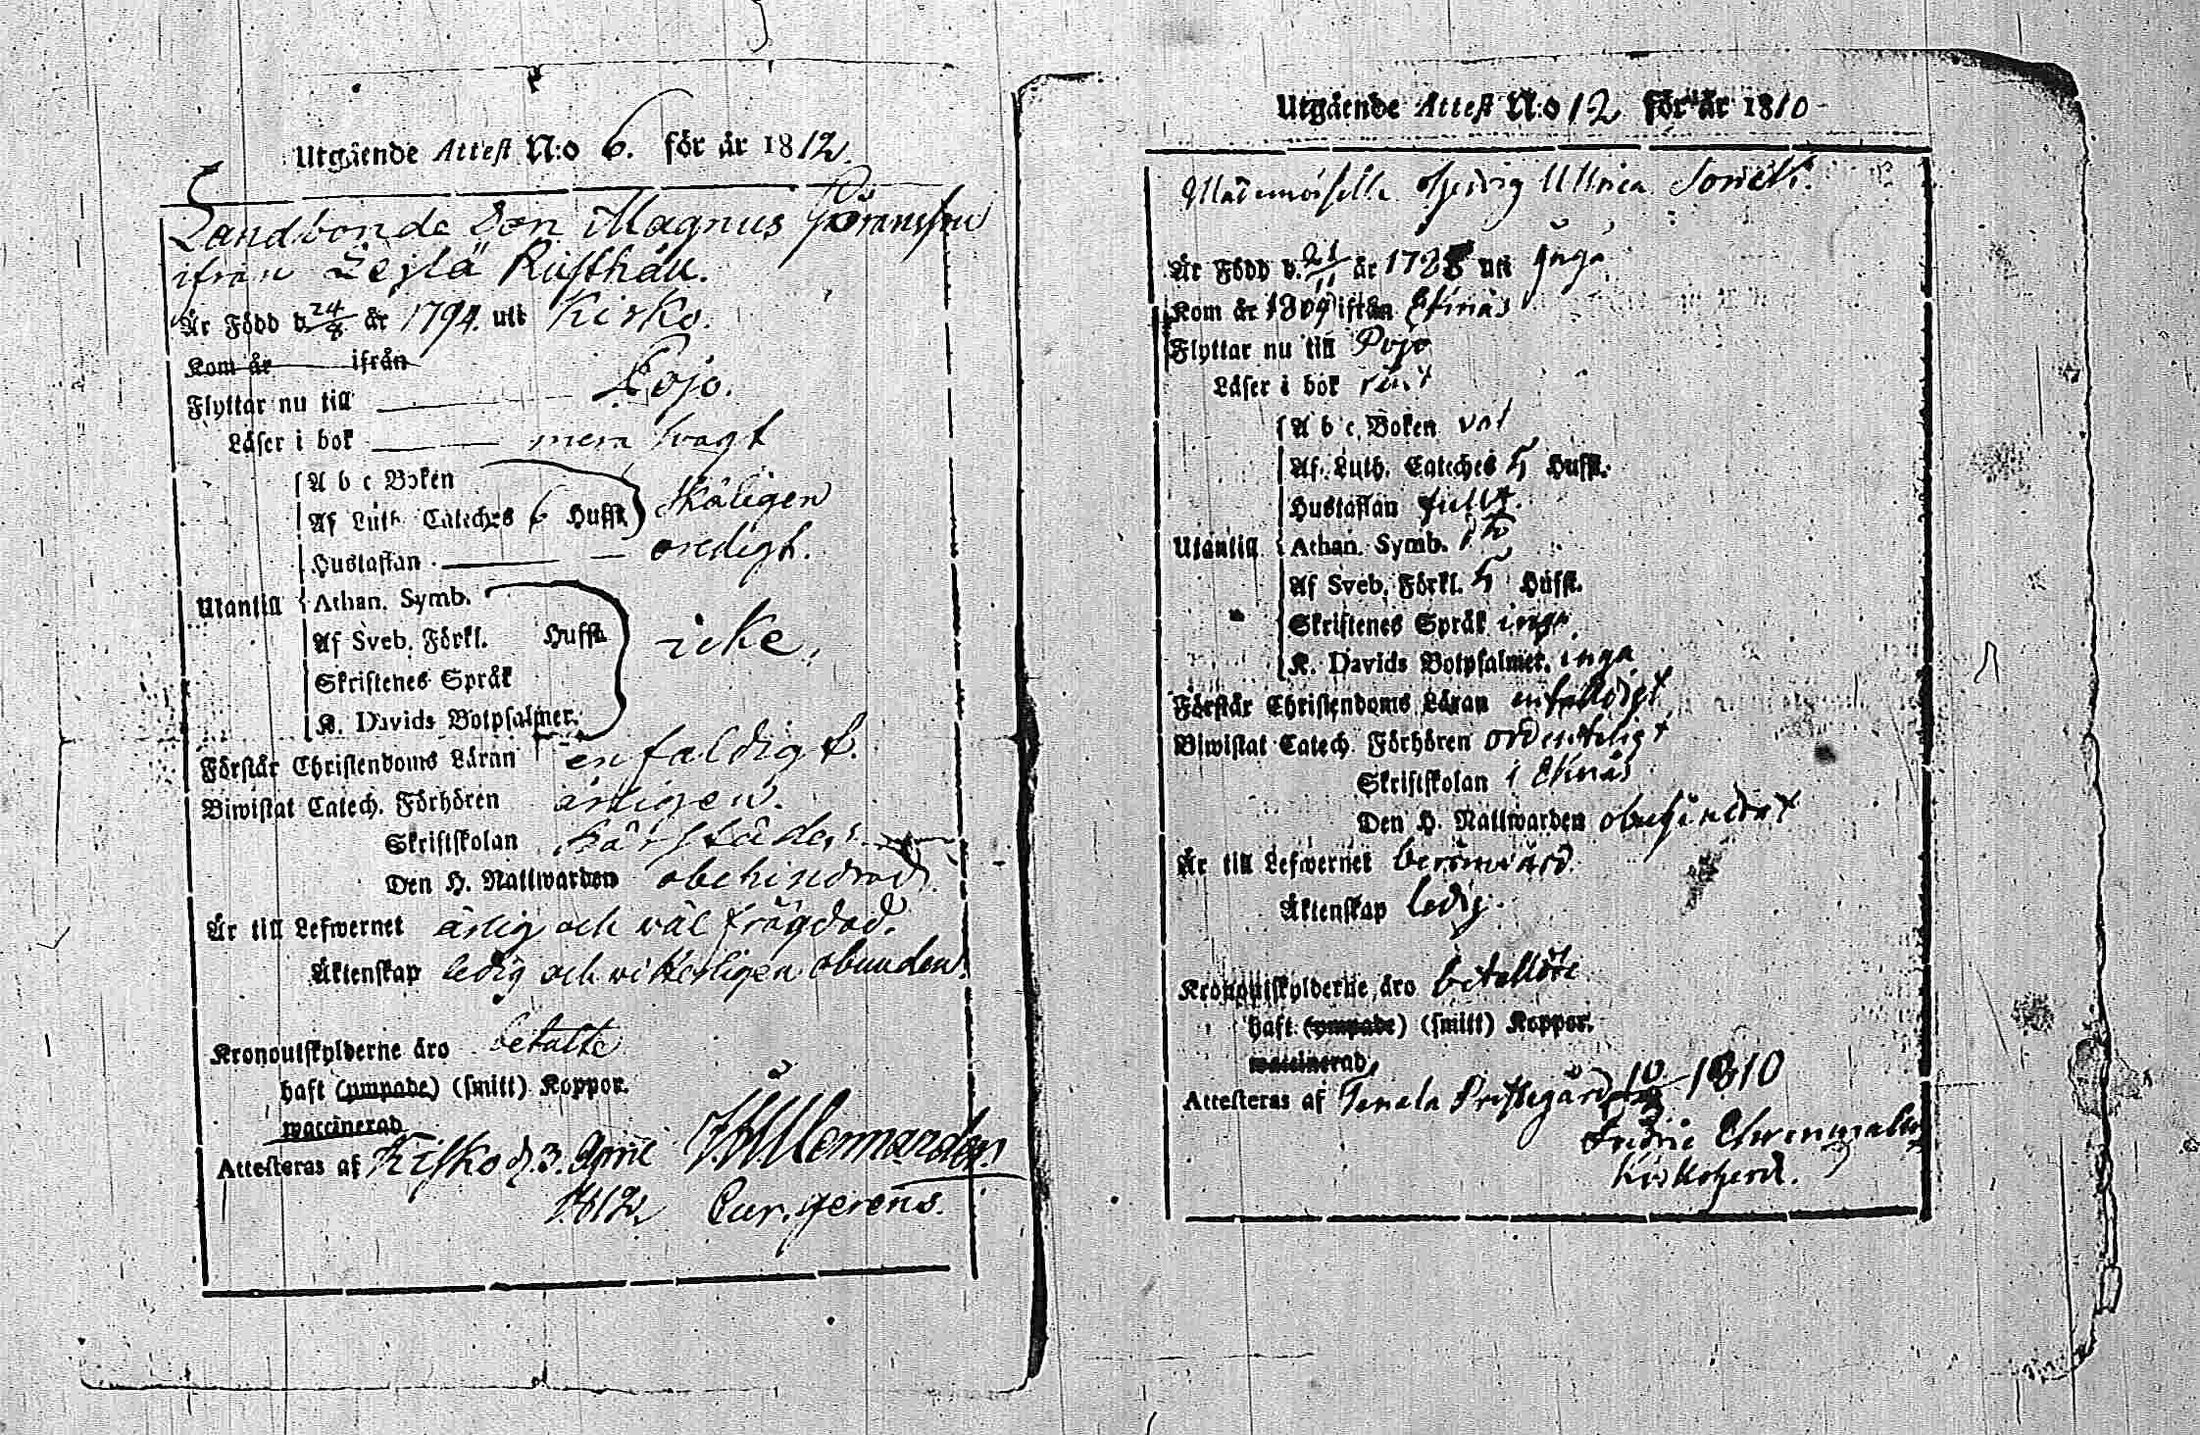 Utgående Attest N:o 6. för år 1812.
Landbonde Son Magnus Göransson
ifrån Rusthåll.
Är Född d. 24/8 år 1794. uti Kisko.
Kom år ifrån
Flyttar nu till Pojo.
Läser i bok mera svagt
A b c Boken
Af Luth. Cateches 6 Hufst. skäligen
Hustaflan oredigt.
Utantill Athan. Symb.
Af Sveb. Förkl. Hufst. icke.
Skriftenes Språk
K. Davids Botpsalmer.
Förstår Christendoms Läran enfaldigt.
Biwistat Catech. Förhören årligen.
Skriftskolan härstädes.
Den H. Nattwarden obehindrad.
Är till Lefwernet ärlig och väl frägdad.
Äktenskap ledig och vitterligen obunden.
Kronoutskylderne äro betalte
haft (ympade) (smitt) Koppor.
waccinerad
Attesteras af Kisko d. 3. April
1812. Cur. gerens.
Utgående Attest N:o 12 för år 1810
Mademoiselle Hedvig Ullrica
Är Född d. år uti Ingå
Kom år 1809 ifrån Eknäs
Flyttar nu till Pojo
Läser i bok rent
A b c Boken väl
Af. Luth. Cateches 5 Hufst.
Hustaflan fullt.
Utantill Athan. Symb. do
Af Sveb. Förkl. 5 Hufst.
Skriftenes Språk inga
K. Davids Botpsalmer. inga
Förstår Christendoms Läran enfaldigt
Biwistat Catech. Förhören ordenteligt
Skriftskolan i Eknäs
Den H. Nattwarden obehindrat
Är till Lefwernet berömvärd.
Äktenskap ledig.
Kronoutskylderne äro betallde
haft (ympade) (smitt) Koppor.
waccinerad
Attesteras af Tenala Prestegård 1810
Fredric Ehrenmalm
Kirkoherde.